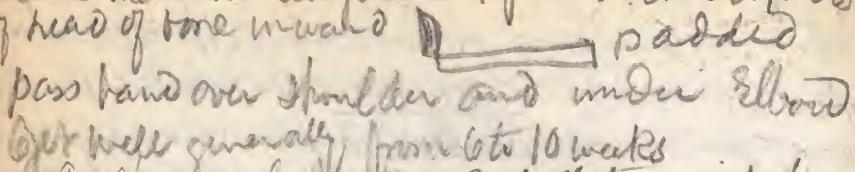 of head of bone inward padded
pass band over shoulder and under Elbow
Get well generally from 6 to 10 weeks